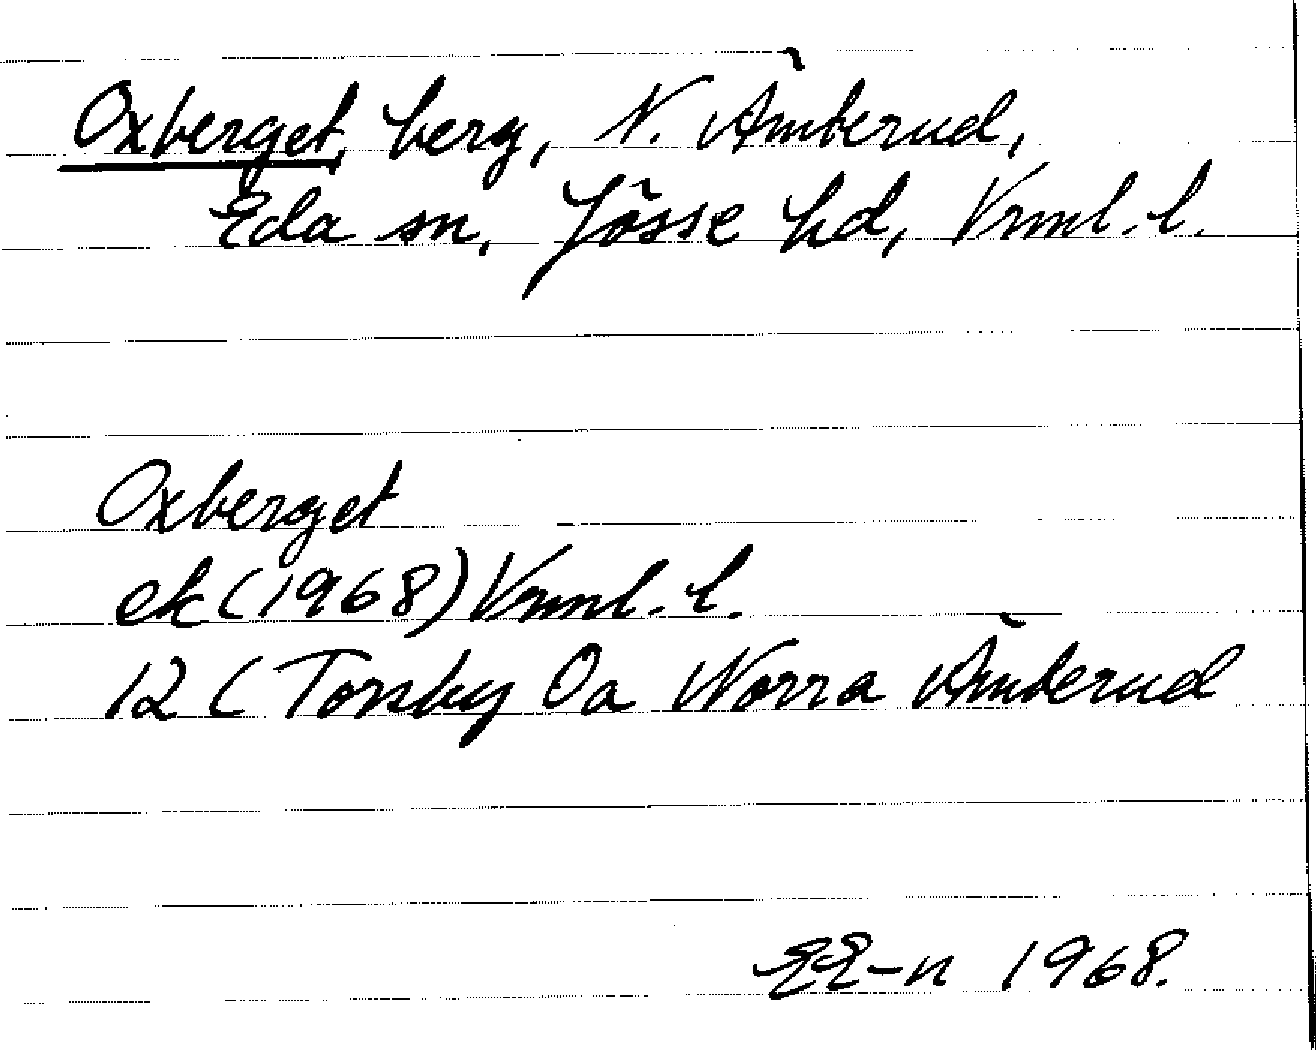 Oxberget, berg, N. Ämterud,
Eda sn, Jösse hd, Vrml. l.
Oxberget
ek (1968) Vrml. l.
12 C Torsby Oa Norra Ämterud
EE-n 1968.